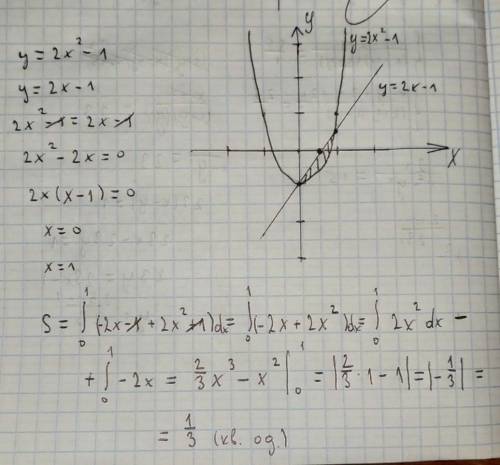 y = 2x² - 1
y = 2x - 1
2x² - 1 = 2x - 1
2x² - 2x = 0
2x(x - 1) = 0
x = 0
x = 1
y
y = 2x² - 1
y = 2x - 1
x
S = ∫₀¹ (-2x - 1 + 2x² + 1)dx = ∫₀¹ (-2x + 2x²)dx = ∫₀¹ 2x² dx -
+ ∫₀¹ -2x = 2/3 x³ - x² |₀¹ = |2/3 · 1 - 1| = |-1/3| =
= 1/3 (кв. од.)